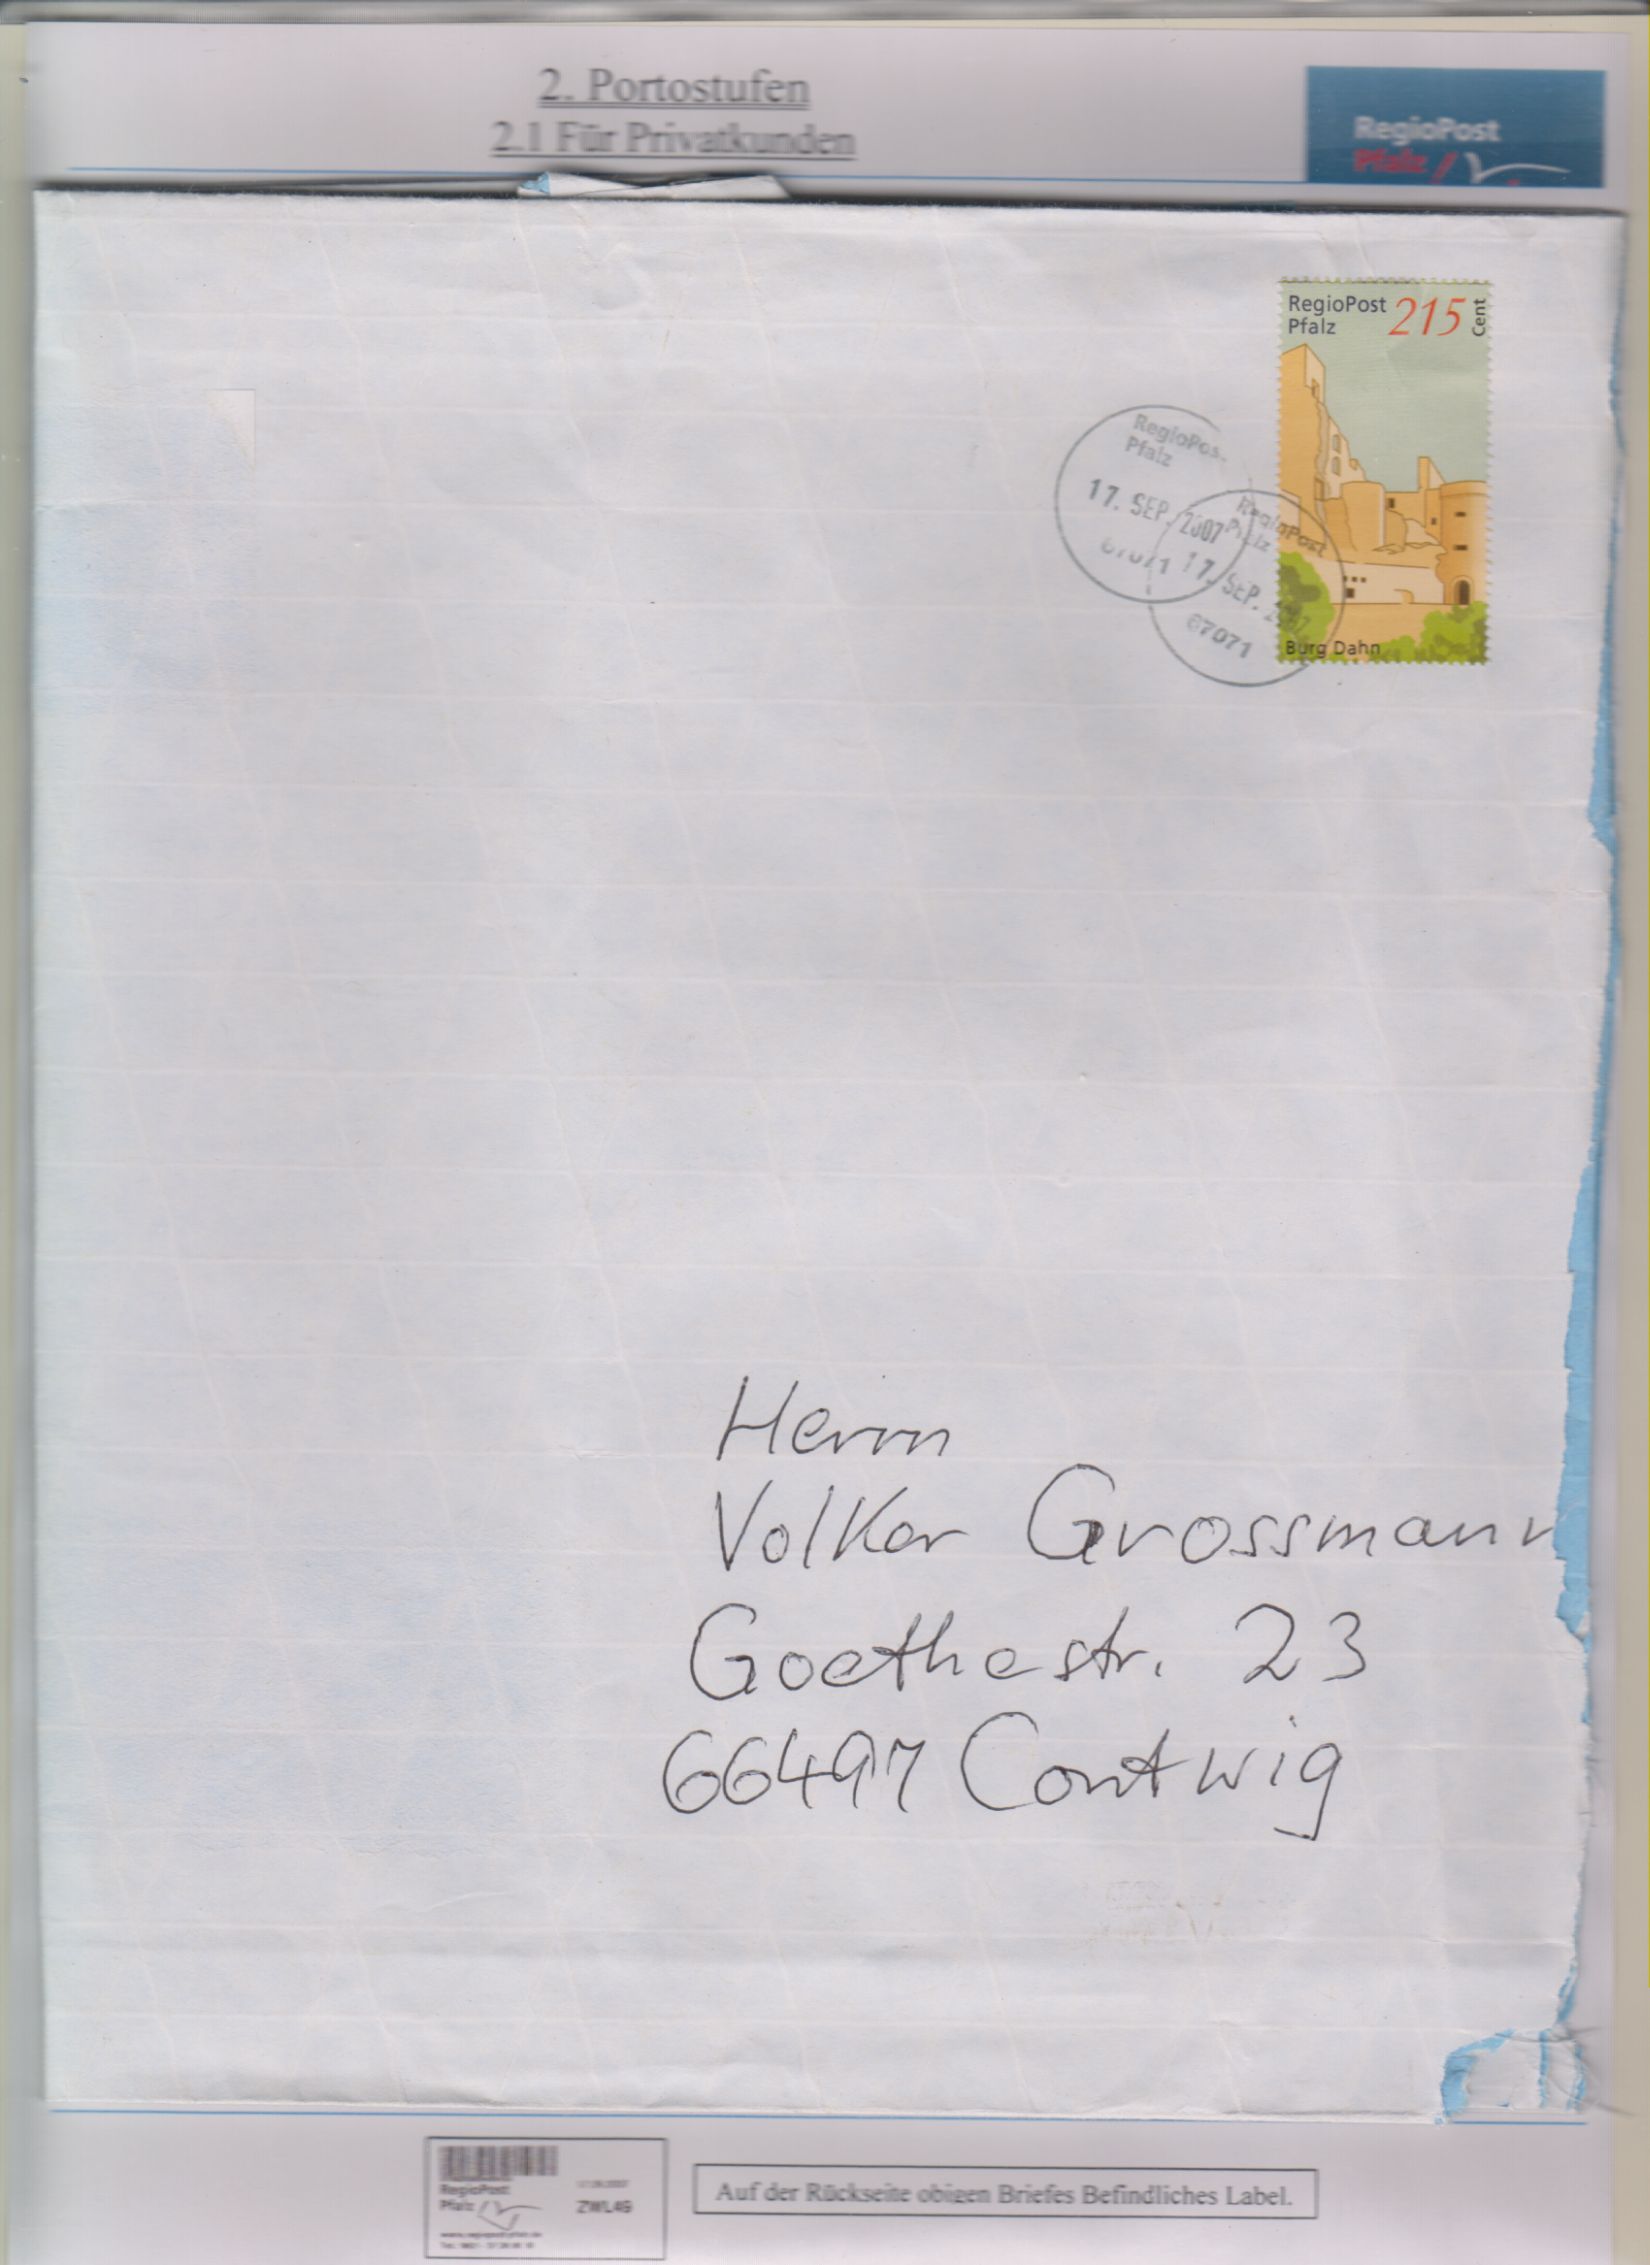 2. Portostufen
2.1 Für Privatkunden
RegioPost
Pfalz
RegioPost 215 Cent
Pfalz
RegioPos
Pfalz
17. SEP. 2007
67071
RegioPost
Pfalz
17. SEP. 2007
67071
Burg Dahn
Herrn
Volker Grossmann
Goethestr. 23
66497 Contwig
RegioPost
Pfalz
ZWL49
Auf der Rückseite obigen Briefes Befindliches Label.